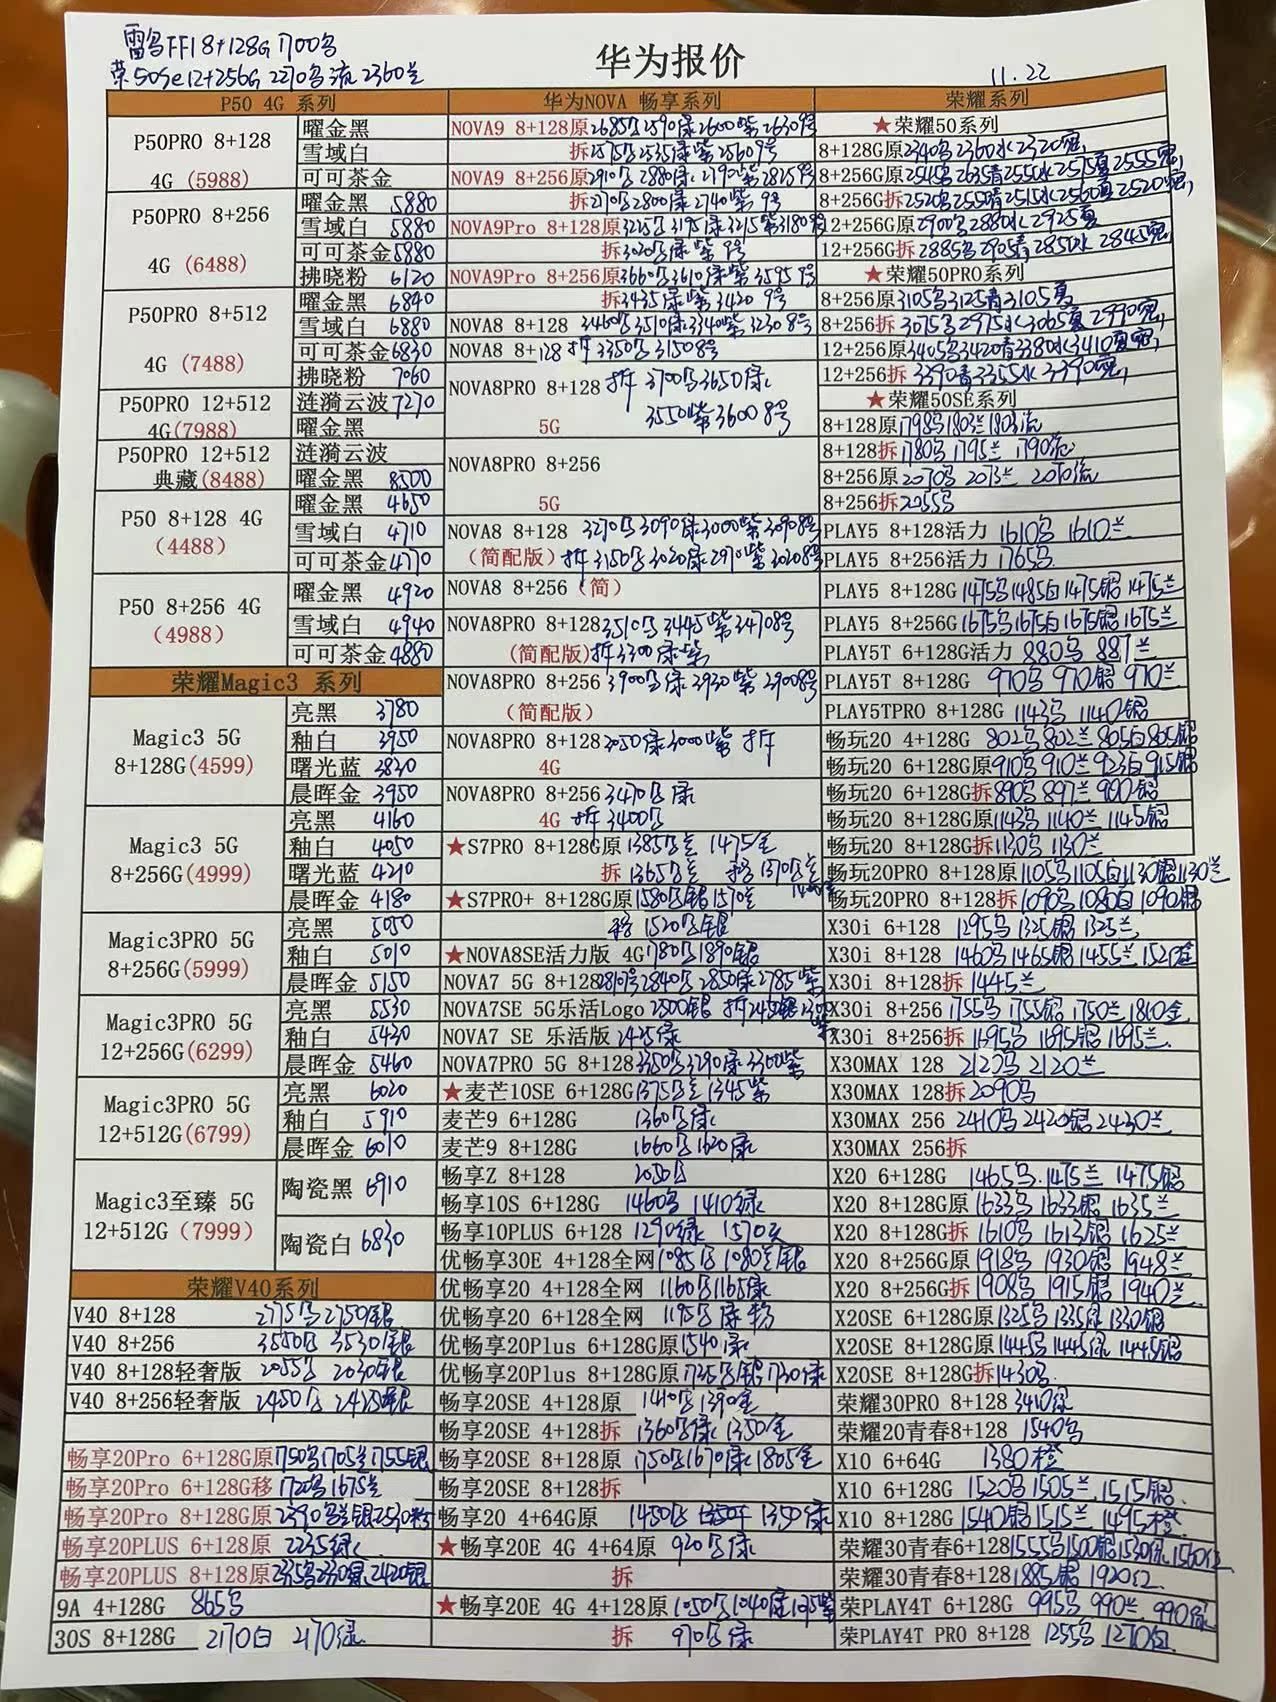 华为报价
11.22
雷鸟FF1 8+128G 1700鸟
荣50Se12+256G 2270鸟流 2360兰
P50 4G 系列
P50PRO 8+128
4G (5988)
曜金黑
雪域白
可可茶金
P50PRO 8+256
4G (6488)
曜金黑 5880
雪域白 5880
可可茶金 5880
拂晓粉 6120
P50PRO 8+512
4G (7488)
曜金黑 6840
雪域白 6880
可可茶金 6830
拂晓粉 7060
P50PRO 12+512
4G(7988)
涟漪云波 7270
曜金黑
P50PRO 12+512
典藏(8488)
涟漪云波
曜金黑 8500
P50 8+128 4G
(4488)
曜金黑 4650
雪域白 4710
可可茶金 4770
P50 8+256 4G
(4988)
曜金黑 4920
雪域白 4940
可可茶金 4880
荣耀Magic3 系列
Magic3 5G
8+128G(4599)
亮黑 3780
釉白 3950
曙光蓝 3830
晨晖金 3950
Magic3 5G
8+256G(4999)
亮黑 4160
釉白 4050
曙光蓝 4210
晨晖金 4180
Magic3PRO 5G
8+256G(5999)
亮黑 5050
釉白 5010
晨晖金 5150
Magic3PRO 5G
12+256G(6299)
亮黑 5530
釉白 5430
晨晖金 5460
Magic3PRO 5G
12+512G(6799)
亮黑 6020
釉白 5910
晨晖金 6010
Magic3至臻 5G
12+512G (7999)
陶瓷黑 6910
陶瓷白 6830
荣耀V40系列
V40 8+128 2775鸟2750银
V40 8+256 3550鸟 3530银
V40 8+128轻奢版 2055鸟 2030银
V40 8+256轻奢版 2450鸟 2425银
畅享20Pro 6+128G原 1750鸟1705兰1755银
畅享20Pro 6+128G移 1720鸟1675兰
畅享20Pro 8+128G原 2390鸟兰银2530粉
畅享20PLUS 6+128原 2235绿
畅享20PLUS 8+128原
9A 4+128G 865鸟
30S 8+128G 2170白 2170绿
华为NOVA 畅享系列
NOVA9 8+128原 2685鸟2590绿2600紫2630 9号
拆2575鸟2535绿紫2560 9号
NOVA9 8+256原 2910鸟2880绿2790紫2825 9号
拆2710鸟2800绿2740紫 9号
NOVA9Pro 8+128原 3225鸟3195绿3215紫3180
拆3020鸟绿紫 9号
NOVA9Pro 8+256原 3660鸟3610绿紫3595 9号
拆3435绿紫3420 9号
NOVA8 8+128 3460鸟3510绿3340紫3230 8号
NOVA8 8+128 拆 3350鸟3150 8号
NOVA8PRO 8+128 拆 3700鸟3650绿
5G 3550紫3600 8号
NOVA8PRO 8+256
5G
NOVA8 8+128 3270鸟3090绿3000紫3090 8号
(简配版) 拆3150鸟3020绿2970紫3020 8号
NOVA8 8+256 (简)
NOVA8PRO 8+128 3510鸟3445紫3470 8号
(简配版) 拆3300绿紫
NOVA8PRO 8+256 3900鸟绿3930紫3900 8号
(简配版)
NOVA8PRO 8+128 3050绿3000紫 拆
4G
NOVA8PRO 8+256 3470鸟绿
4G 拆3400鸟
★S7PRO 8+128G原 1385鸟兰 1475金
拆 1365鸟兰 移1370鸟兰
★S7PRO+ 8+128G原 1580鸟银1570兰
移 1520鸟银
★NOVA8SE活力版 4G 1780鸟1890银
NOVA7 5G 8+128 2810号2840鸟2850绿2785紫
NOVA7SE 5G乐活Logo 2500银 拆2450银
NOVA7 SE 乐活版 2425绿
NOVA7PRO 5G 8+128 3350鸟3290绿3300紫
★麦芒10SE 6+128G 1375鸟兰1345紫
麦芒9 6+128G 1360鸟绿
麦芒9 8+128G 1660鸟1620绿
畅享Z 8+128 2050鸟
畅享10S 6+128G 1460鸟 1410绿
畅享10PLUS 6+128 1290绿 1570天
优畅享30E 4+128全网 1085鸟1080兰银
优畅享20 4+128全网 1160鸟1165绿
优畅享20 6+128全网 1195鸟绿粉
优畅享20Plus 6+128G原 1540绿
优畅享20Plus 8+128G原 1735鸟银1730绿
畅享20SE 4+128原 1410鸟1390金
畅享20SE 4+128拆 1360鸟绿 1350金
畅享20SE 8+128原 1750鸟1670绿1805金
畅享20SE 8+128拆
畅享20 4+64G原 1450鸟 1350绿
★畅享20E 4G 4+64原 920鸟绿
拆
★畅享20E 4G 4+128原 1050鸟1040绿1075紫
拆 970鸟绿
荣耀系列
★荣耀50系列
8+128G原2340鸟2360水2320霓
8+256G原2545鸟2635青2550水2575夏2555霓
8+256G拆2520鸟2550青2515水2560夏2520霓
12+256G原2900鸟2880水2925夏
12+256G拆2885鸟2905青2850水2845霓
★荣耀50PRO系列
8+256原3105鸟3125青3105夏
8+256拆 3075鸟2975水3065夏2990霓
12+256原3405鸟3420青3380水3410夏霓
12+256拆 3390青3355水3390霓
★荣耀50SE系列
8+128原1798鸟1803兰1803流
8+128拆1780鸟1795兰 1790流
8+256原2070鸟 2073兰 2070流
8+256拆2055鸟
PLAY5 8+128活力 1610鸟 1610兰
PLAY5 8+256活力 1765鸟
PLAY5 8+128G 1475鸟1485白1475银1475兰
PLAY5 8+256G 1675鸟1675白1675银1675兰
PLAY5T 6+128G活力 880鸟 887兰
PLAY5T 8+128G 970鸟 970银 970兰
PLAY5TPRO 8+128G 1143鸟 1140银
畅玩20 4+128G 802鸟802兰805白805银
畅玩20 6+128G原910鸟910兰923白915银
畅玩20 6+128G拆890鸟 897兰 900银
畅玩20 8+128G原1143鸟 1140兰 1145银
畅玩20 8+128G拆1130鸟 1130兰
畅玩20PRO 8+128原 1105鸟1105白1130银1130兰
畅玩20PRO 8+128拆 1090鸟1080白1090银
X30i 6+128 1295鸟 1325银 1325兰
X30i 8+128 1460鸟 1465银 1455兰 1520金
X30i 8+128拆 1445兰
X30i 8+256 1755鸟 1755银 1750兰 1810金
X30i 8+256拆 1695鸟 1695银 1695兰
X30MAX 128 2120鸟 2120兰
X30MAX 128拆 2090鸟
X30MAX 256 2410鸟 2420银 2430兰
X30MAX 256拆
X20 6+128G 1465鸟 1475兰 1475银
X20 8+128G原 1633鸟 1633银 1635兰
X20 8+128G拆 1610鸟 1613银 1625兰
X20 8+256G原 1918鸟 1930银 1948兰
X20 8+256G拆 1908鸟 1915银 1940兰
X20SE 6+128G原 1325鸟 1335绿 1330银
X20SE 8+128G原 1445鸟 1445绿 1445银
X20SE 8+128G拆1430鸟
荣耀30PRO 8+128 3410绿
荣耀20青春8+128 1540鸟
X10 6+64G 1380橙
X10 6+128G 1520鸟 1505兰 1515银
X10 8+128G 1540银 1515兰 1495橙
荣耀30青春6+128 1555鸟1500银1530绿1560红
荣耀30青春8+128 1885银 1920红
荣PLAY4T 6+128G 995鸟 990兰 990绿
荣PLAY4T PRO 8+128 1255鸟 1270红